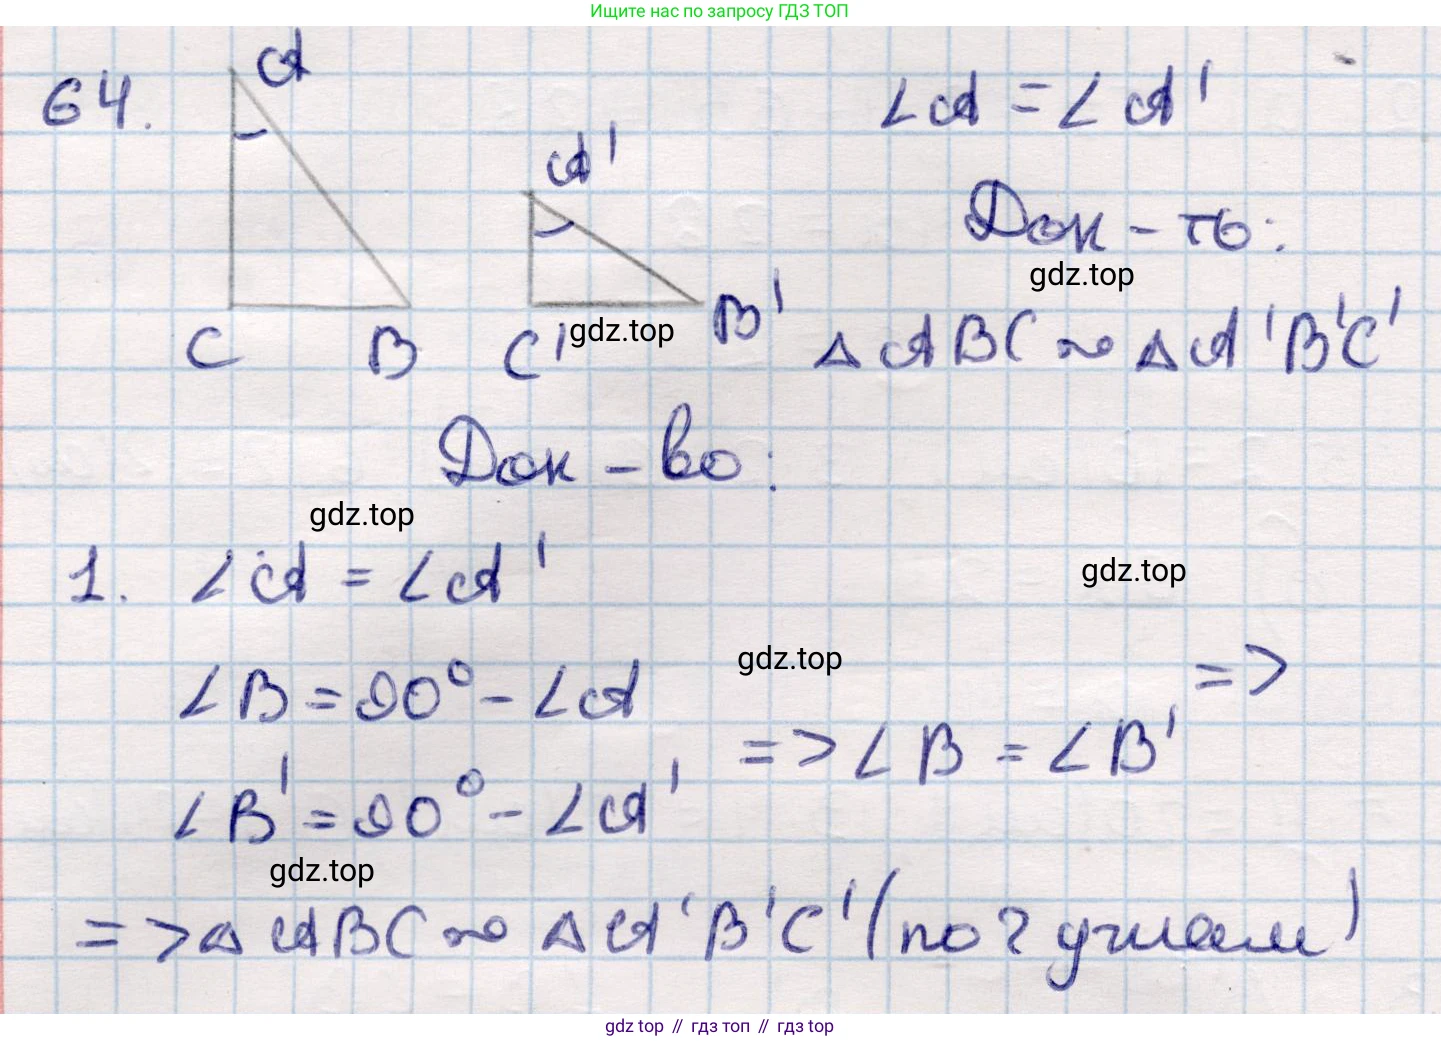 Ищите нас по запросу ГДЗ ТОП
64.
A
∠A = ∠A'
A'
Док-ть:
gdz.top
C B C' gdz.top B' △ABC ~ △A'B'C'
Док-во:
gdz.top
1. ∠A = ∠A'
gdz.top
gdz.top
∠B = 90° - ∠A
=> ∠B = ∠B' =>
∠B' = 90° - ∠A'
gdz.top
=> △ABC ~ △A'B'C' (по 2 углам)
gdz top // гдз топ // гдз top